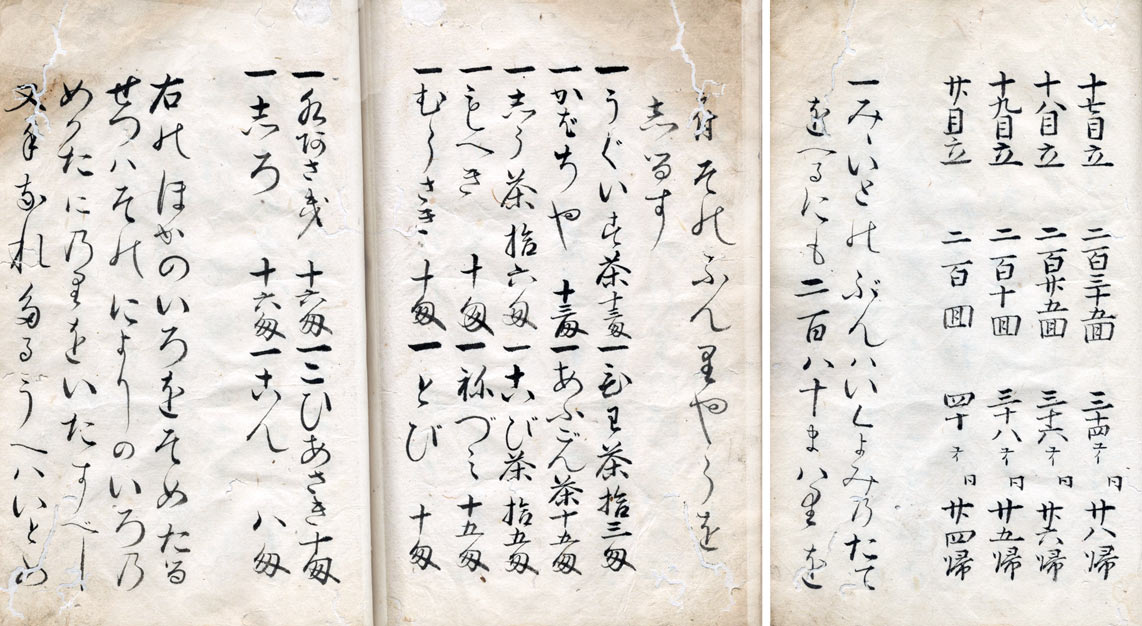 十七目立 二百三十五囬 三十四 日 廿八帰
十八目立 二百廿五囬 三十六 日 廿六帰
十九目立 二百十囬 三十八 日 廿五帰
廿目立 二百囬 四十 日 廿四帰
一みゝいとのぶんハいくよみのたて
にも二百八十まハりを
そのふんりやうを
志るす
一うぐいす茶十三匁 一 茶拾三匁
一かばちや 十三匁 一あふごん茶十五匁
一志う茶拾六匁 一古び茶拾五匁
一もへき 十匁 一祢づミ十五匁
一むらさき 十匁 一とび 十匁
一水あさき 十六匁 一こひあさき十匁
一志ろ 十六匁 一古ん 八匁
右のほかのいろをそめたる
せつハそのによりのいろの
めかたにのりをいたすべし
又手なれたるうへハいとめ